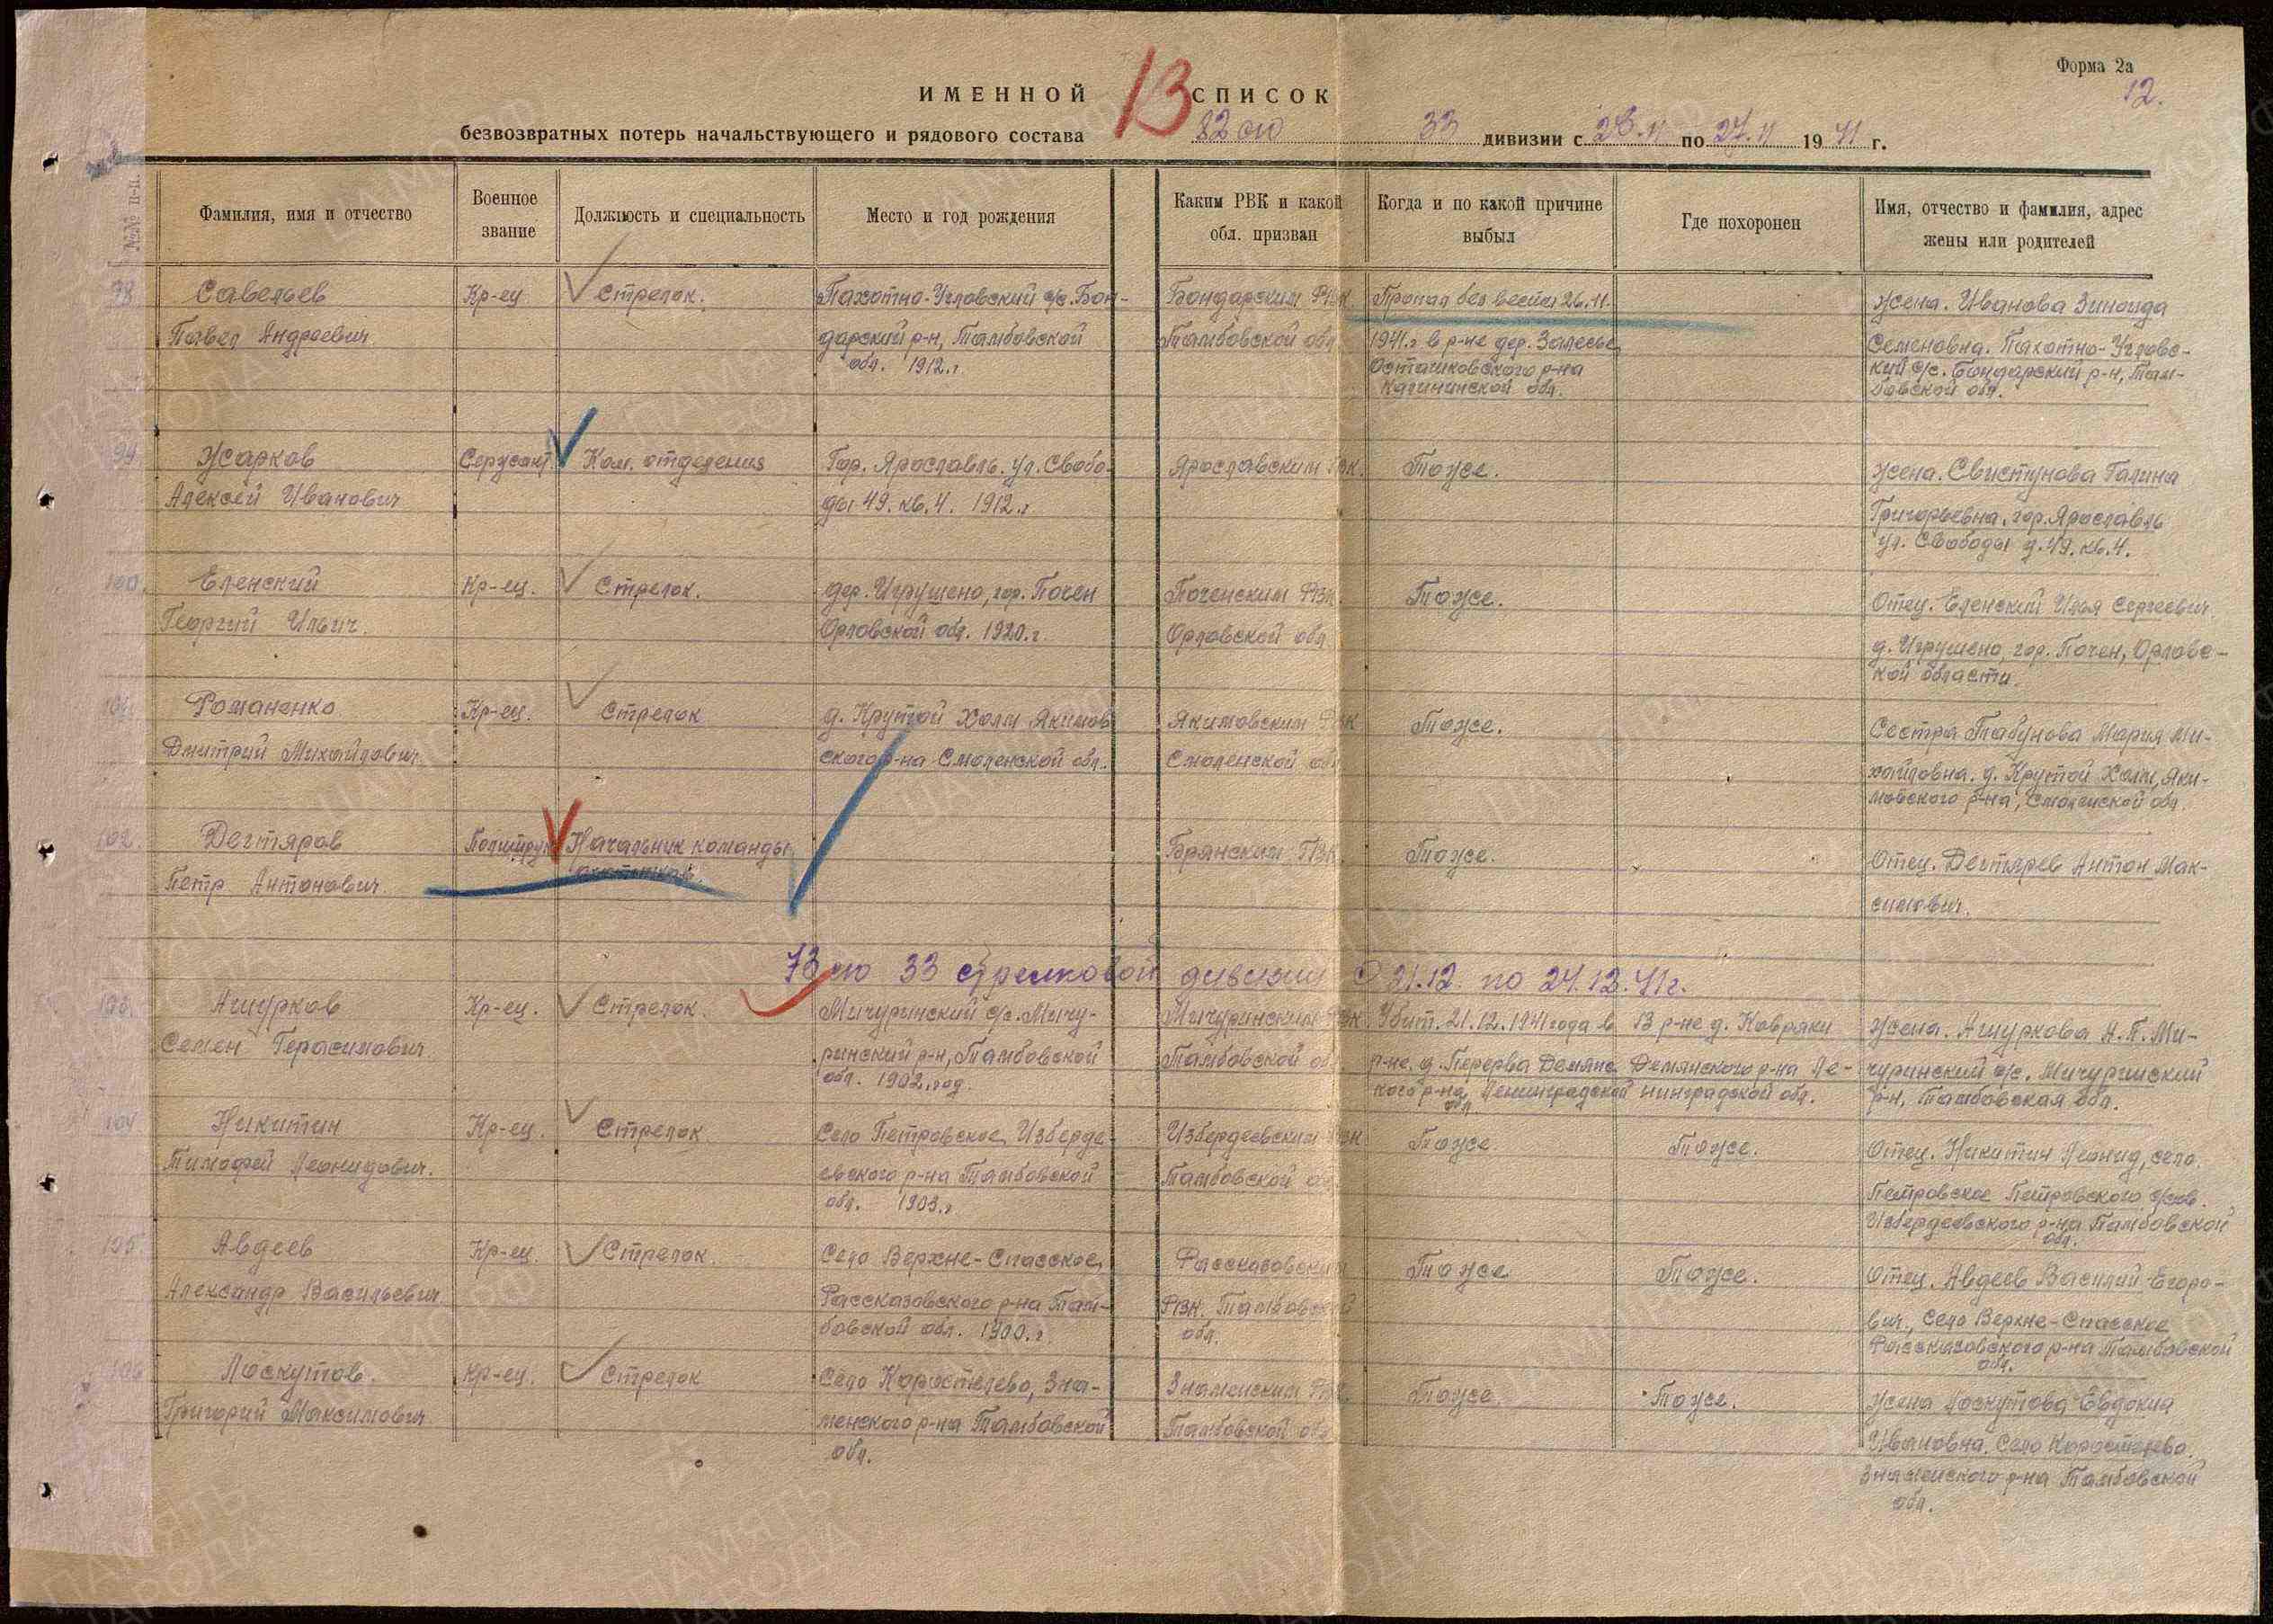 Форма 2а
12.
ИМЕННОЙ 13 СПИСОК
безвозвратных потерь начальствующего и рядового состава 82 сп 33 дивизии с 23.11 по 27.11 1941 г.
№№ п-п.
Фамилия, имя и отчество
Военное
звание
Должность и специальность
Место и год рождения
Каким РВК и какой
обл. призван
Когда и по какой причине
выбыл
Где похоронен
Имя, отчество и фамилия, адрес
жены или родителей
98
Савельев
Павел Андреевич
Кр-ец
Стрелок.
Пахотно-Угловский с/с. Бон-
дарский р-н, Тамбовской
обл. 1912.г
Бондарским РВК
Тамбовской обл
Пропал без вести 26.11.
1941.г в р-не дер. Залесье
Осташковского р-на
Калининской обл.
Жена. Иванова Зинаида
Семеновна. Пахотно-Угловс-
кий с/с. Бондарский р-н, Там-
бовской обл.
99
Жарков
Алексей Иванович
Сержант
Ком. отделения
Гор. Ярославль. ул. Свобо-
ды 49. кв. 4. 1912.г
Ярославским РВК.
Тоже.
Жена. Свистунова Галина
Григорьевна, гор. Ярославль
ул. Свободы д. 49. кв. 4.
100.
Еленский
Георгий Ильич.
Кр-ец.
Стрелок.
дер. Игрушено, гор. Почеп
Орловской обл. 1920.г
Почепским РВК.
Орловской обл
Тоже.
Отец. Еленский Илья Сергеевич.
д. Игрушено, гор. Почеп, Орловс-
кой области.
101.
Романенко
Дмитрий Михайлович.
Кр-ец.
Стрелок
д. Крутой Холм Якимов
ского р-на Смоленской обл.
Якимовским РВК
Смоленской обл
Тоже.
Сестра Табунова Мария Ми-
хайловна. д. Крутой Холм, Яки-
мовского р-на, Смоленской обл.
102.
Дегтяров
Петр Антонович.
Политрук
Начальник команды
Брянским РВК.
Тоже.
Отец. Дегтярев Антон Мак-
симович.
73 сп 33 стрелковой дивизии с 21.12. по 24.12.41г.
103.
Ашурков
Семен Герасимович
Кр-ец.
Стрелок.
Мичуринский с/с. Мичу-
ринский р-н, Тамбовской
обл. 1902. год.
Мичуринским РВК
Тамбовской об
Убит. 21.12.1941 года в
р-не. д. Перерва Демянс
кого р-на Ленинградской
обл
В р-не д. Ковряки
Демянского р-на Ле-
нинградской обл.
Жена. Ашуркова А.П. Ми-
чуринский с/с. Мичуринский
р-н, Тамбовская обл.
104
Никитин
Тимофей Леонидович.
Кр-ец.
Стрелок
Село Петровское, Изберде
евского р-на Тамбовской
обл. 1903.г
Избердеевским РВК
Тамбовской об
Тоже
Тоже.
Отец. Никитин Леонид, село.
Петровское Петровского с/сов.
Избердеевского р-на Тамбовской
обл.
105.
Авдеев
Александр Васильевич
Кр-ец.
Стрелок.
Село Верхне-Спасское,
Рассказовского р-на Там-
бовской обл. 1900.г
Рассказовским
РВК. Тамбовской
обл.
Тоже
Тоже.
Отец. Авдеев Василий Егоро-
вич., Село Верхне-Спасское
Рассказовского р-на Тамбовской
обл.
106
Лоскутов.
Григорий Максимович
Кр-ец.
Стрелок
Село Коростелево, Зна-
менского р-на Тамбовской
обл.
Знаменским РВК
Тамбовской обл
Тоже.
Тоже.
Жена Лоскутова Евдокия
Ивановна. Село Коростелево.
Знаменского р-на Тамбовской
обл.